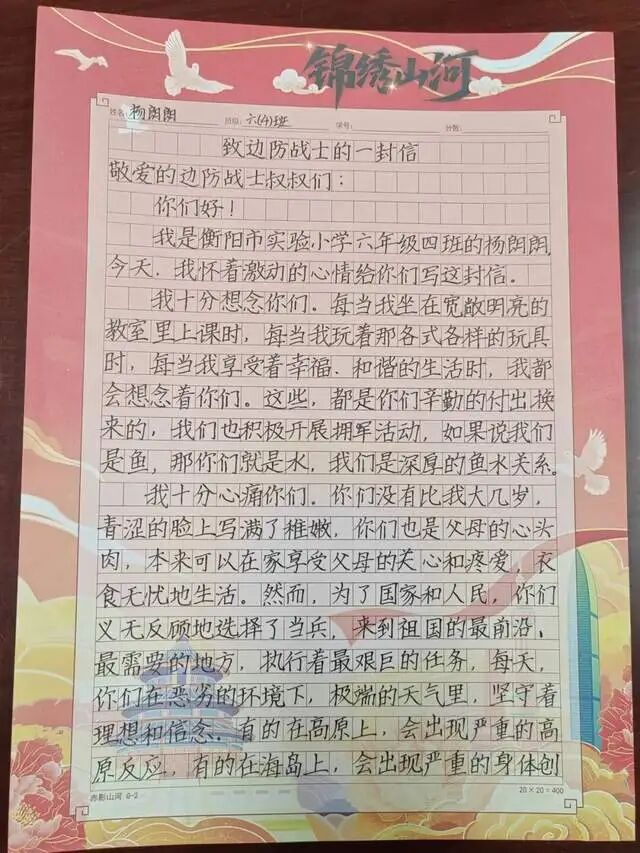 锦绣山河
姓名:杨朗朗 班级:六(4)班 学号: 分数:
致边防战士的一封信
敬爱的边防战士叔叔们:
你们好!
我是衡阳市实验小学六年级四班的杨朗朗,
今天,我怀着激动的心情给你们写这封信。
我十分想念你们。每当我坐在宽敞明亮的
教室里上课时,每当我玩着那各式各样的玩具
时,每当我享受着幸福、和谐的生活时,我都
会想念着你们。这些,都是你们辛勤的付出换
来的,我们也积极开展拥军活动,如果说我们
是鱼,那你们就是水,我们是深厚的鱼水关系。
我十分心痛你们。你们没有比我大几岁,
青涩的脸上写满了稚嫩,你们也是父母的心头
肉,本来可以在家享受父母的关心和疼爱,衣
食无忧地生活。然而,为了国家和人民,你们
义无反顾地选择了当兵,来到祖国的最前沿、
最需要的地方,执行着最艰巨的任务,每天,
你们在恶劣的环境下,极端的天气里,坚守着
理想和信念,有的在高原上,会出现严重的高
原反应,有的在海岛上,会出现严重的身体创
赤影山河 G-2 20×20=400